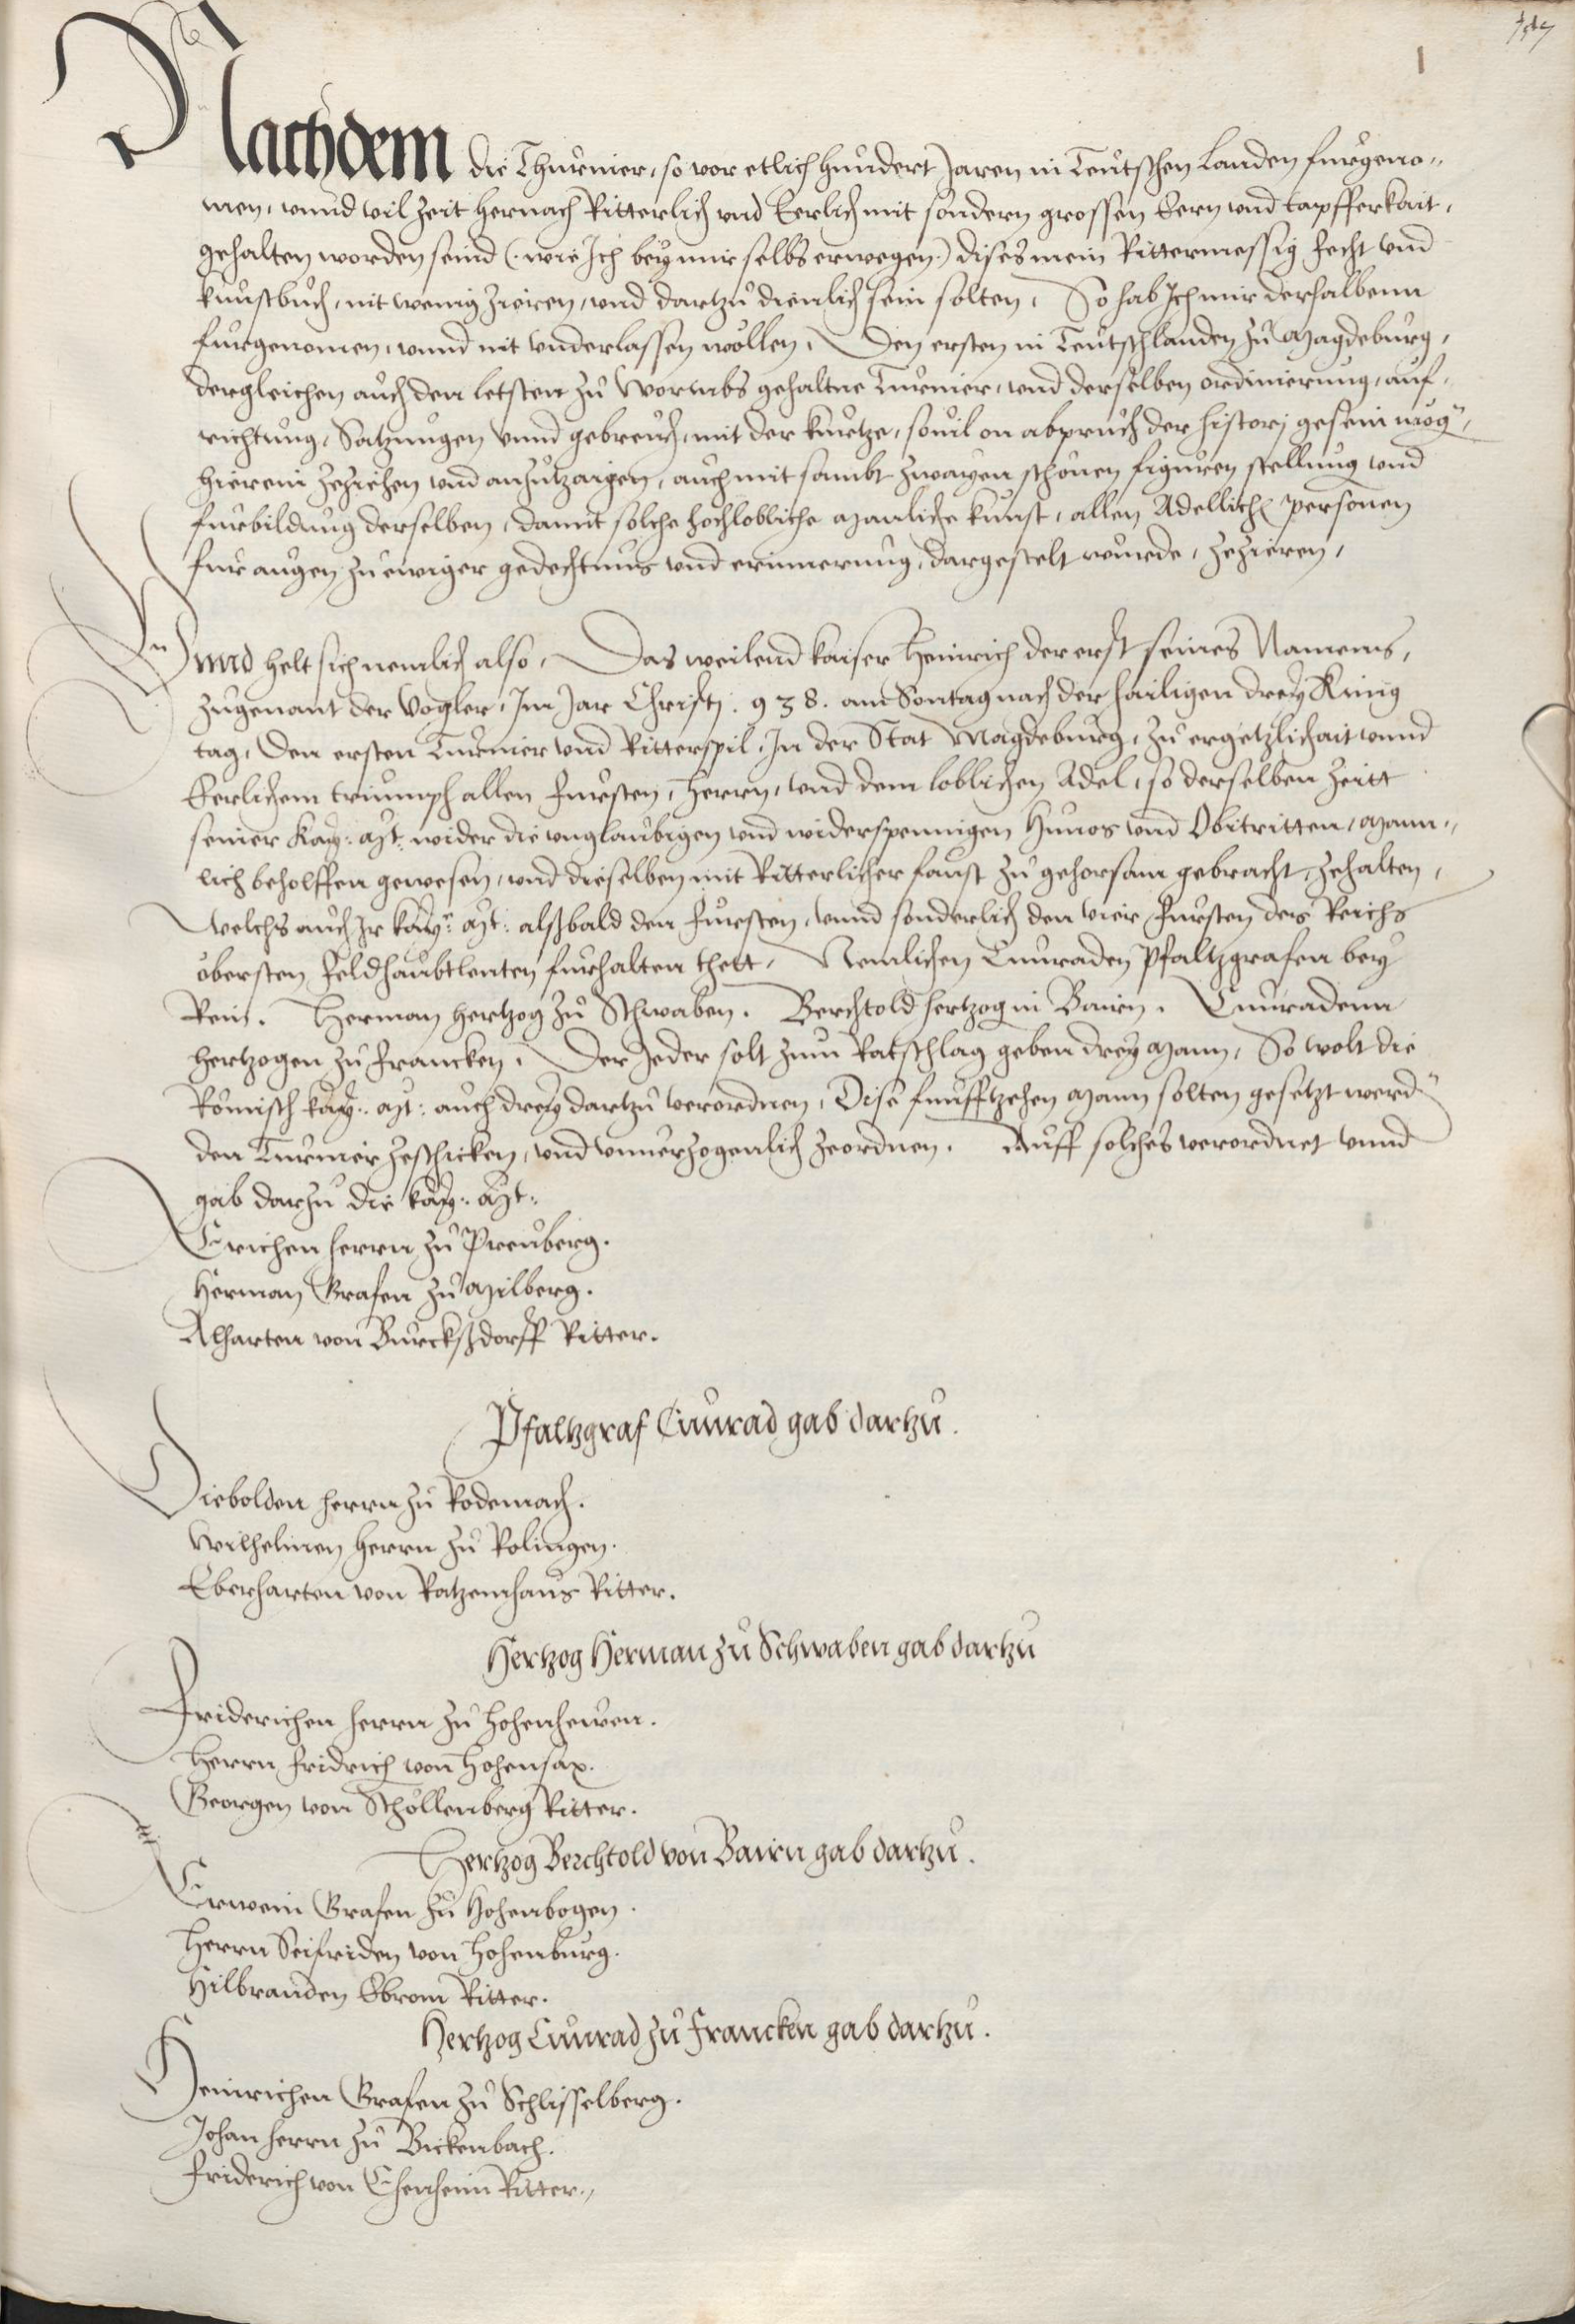 1
Nachdem die Thurnier, so vor etlich hundert Jaren in Teutschen Landen furgeno„
men, unnd vil zeit hernach Ritterlich und Eerlich mit sondern grossen Eern und tapfferkait,
gehalten worden seind (wie Ich bey mir selbs erwegen) dises mein Rittermessig fecht und
kunstbuch, nit wenig zieren, und dartzu dienlich sein solten, So hab Ich mir derhalbenn
furgenomen, unnd nit underlassen wöllen, Den ersten in Teutschlanden zu Magdeburg,
dergleichen auch den letsten zu Wormbs gehaltne Turnier, und derselben ordinierung, auf„
richtung, Satzungen unnd gebreuch, mit der kurtze, sovil on abpruch der histori gesein mög,
hierein zeziehen und anzutzaigen, auch mit sambt zwayen schönen figuren stellung und
furbildung derselben, damit solche hochlobliche Manliche kunst, allen Adellichen personen
fur augen zu ewiger gedechtnus und erinnerung, dargestelt wurde, zezieren,
Unnd helt sich nemlich also, Das weilend kaiser Heinrich der erst seines Namens,
zugenant der Vogler, Im Jar Christi . 938 . am Sontag nach der hailigen drey King
tag, Den ersten Turnier und Ritterspil, In der Stat Magdeburg, zu ergetzlichait unnd
Eerlichem triumph allen Fursten, Herrn, und dem loblichen Adel, so derselben zeitt
seiner Kay: Mt: wider die unglaubigen und widerspennigen Hunos und Obitritten, Mann„
lich beholffen gewesen, und dieselben mit Ritterlicher faust zu gehorsam gebracht, zehalten,
Welchs auch Ir kay: Mt: alßbald den Fursten, unnd sonderlich den vier Fursten des Reichs
öbersten Feldhaubtleuten furhalten thett, Nemlichen Cunraden Pfaltzgrafen bey
Rein. Herman Hertzog zu Schwaben. Berchtold hertzog in Bairn. Cunradenn
Hertzogen zu Francken. Der Jeder solt zum Ratschlag geben drey Mann, So wolt die
Römisch kay: Mt: auch drey dartzu verordnen, Dise funfftzehen Mann solten gesetzt werdn
den Turnier zeschicken, und unnverzogenlich zeordnen. Auff solches verordnet unnd
gab darzu die kay: Mt:
Erichen herrn zu Preuberg.
Herman Grafen zu Milberg.
Alharten von Burckßdorff Ritter.
Pfaltzgraf Cunrad gab dartzu.
Diebolden herrn zu Rodemach.
Wilhelmen herrn zu Rolingen.
Eberharten von Ratzenhaus Ritter.
Hertzog Herman zu Schwaben gab dartzu
Friderichen herrn zu Hohenhewen.
Herrn Fridrich von Hohensax.
Georgen von Schöllenberg Ritter.
Hertzog Berchtold von Bairn gab dartzu.
Erwein Grafen zu Hohenbogen.
Herrn Seifriden von Hohenburg.
Hilbranden Ebrom Ritter.
Hertzog Cunrad zu Francken gab dartzu.
Heinrichen Grafen zu Schlisselberg.
Johan herrn zu Bickenbach.
Friderich von Ehenheim Ritter.